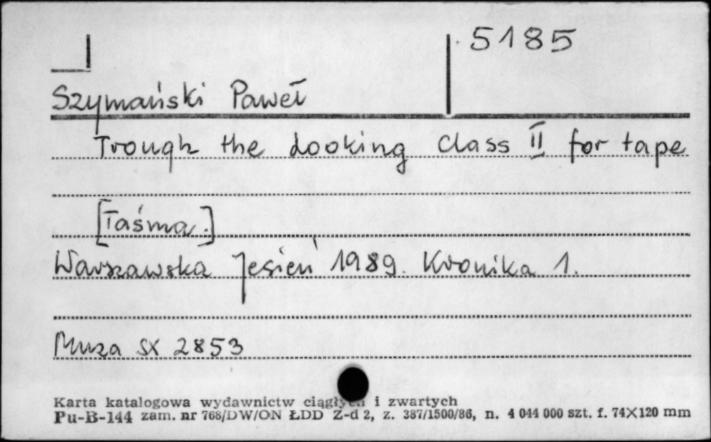 5185
Szymański Paweł
Trough the Looking Class II for tape
[Taśma.]
Warszawska Jesień 1989. Kronika 1.
Muza SX 2853
Karta katalogowa wydawnictw ciągłych i zwartych
Pu-B-144 zam. nr 768/DW/ON ŁDD Z-d 2, z. 387/1500/86, n. 4 044 000 szt. f. 74X120 mm